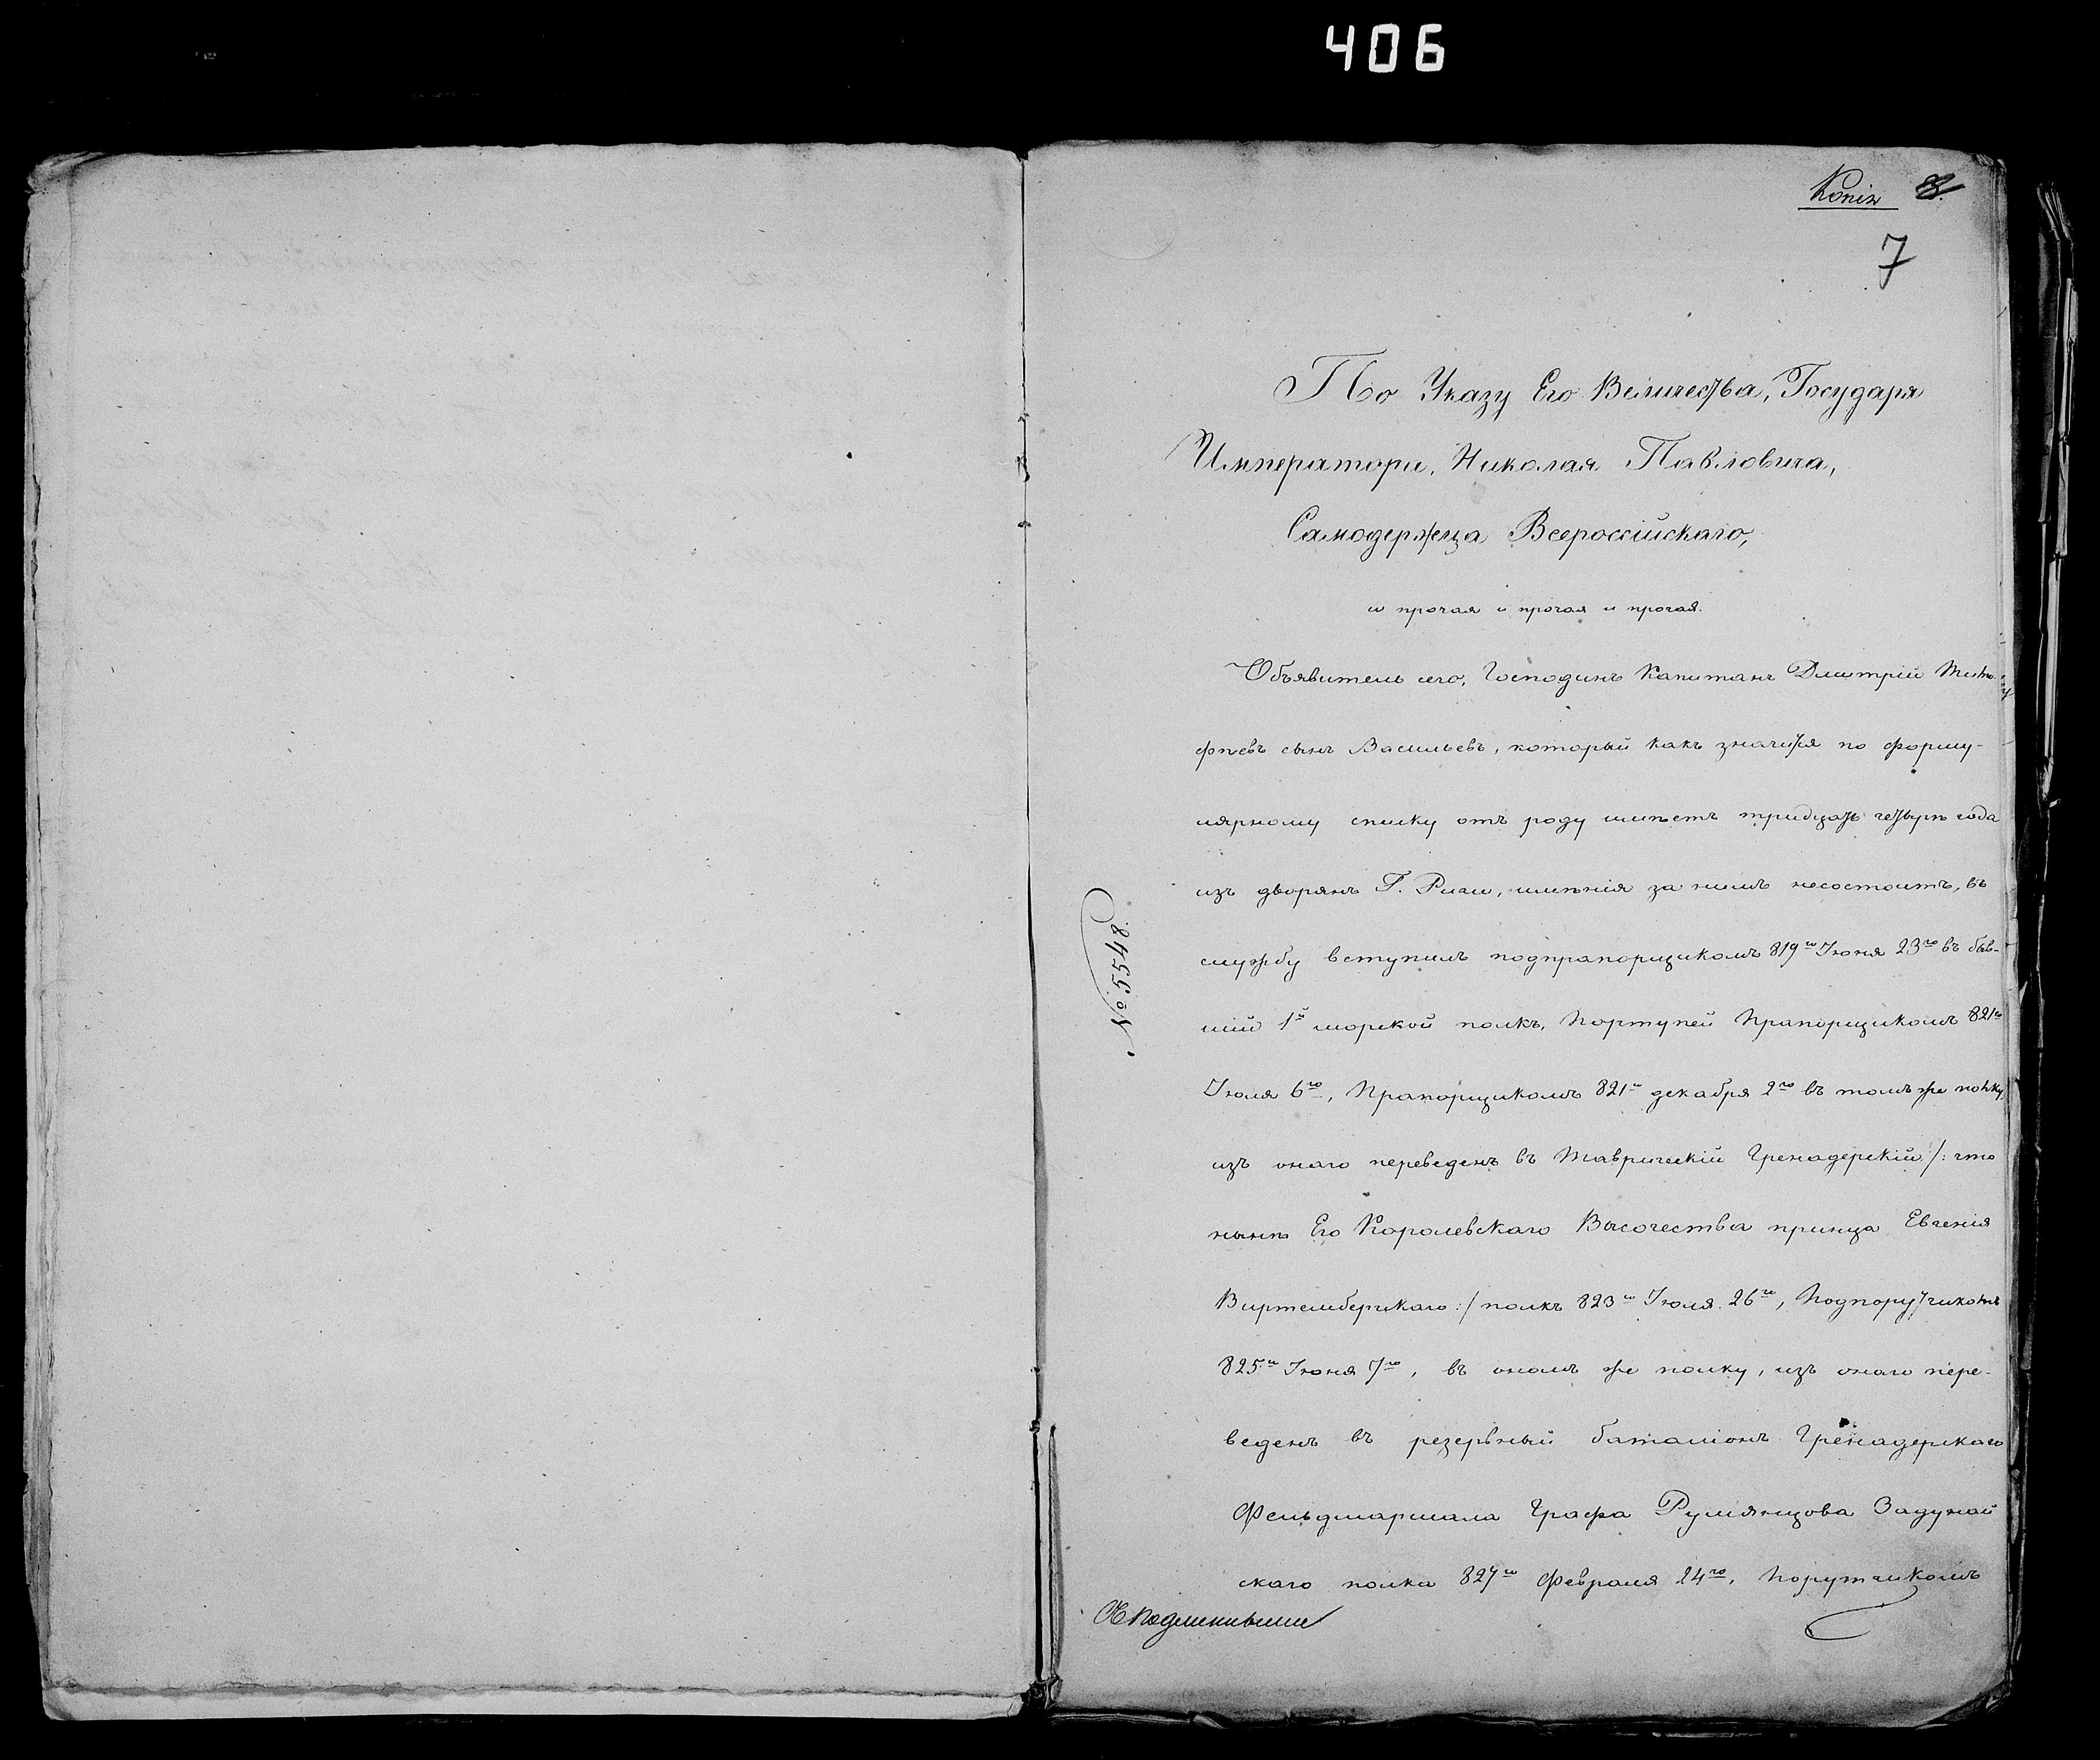 406
Копія 8.
7
По Указу Его Величества, Государя
Императора, Николая Павловича,
Самодержца Всероссійскаго,
и прочая и прочая и прочая.
Объявитель сего, Господинъ Капитанъ Дмитрій Тимо-
фѣевъ сынъ Васильевъ, который какъ значится по форму-
лярному списку отъ роду имѣетъ тридцать четыре года
изъ дворянъ Г. Риги, имѣнія за нимъ несостоитъ, въ
службу вступилъ подпрапорщикомъ 819го Іюня 23го въ быв-
шій 1й морской полкъ, Портупей Прапорщикомъ 821го
Іюля 6го, Прапорщикомъ 821го декабря 2го въ томъ же полку,
изъ онаго переведенъ въ Таврическій Гренадерскій /: что
нынѣ Его Королевскаго Высочества принца Евгенія
Виртембергскаго :/ полкъ 823го Іюля 26го, Подпоручикомъ
825го Іюня 7го, въ ономъ же полку, изъ онаго пере-
веденъ въ резервный баталіонъ Гренадерскаго
Фельдмаршала Графа Румянцова Задунай
скаго полка 827го Февраля 24го, Поручикомъ
№ 5548.
Съ подлиннымъ